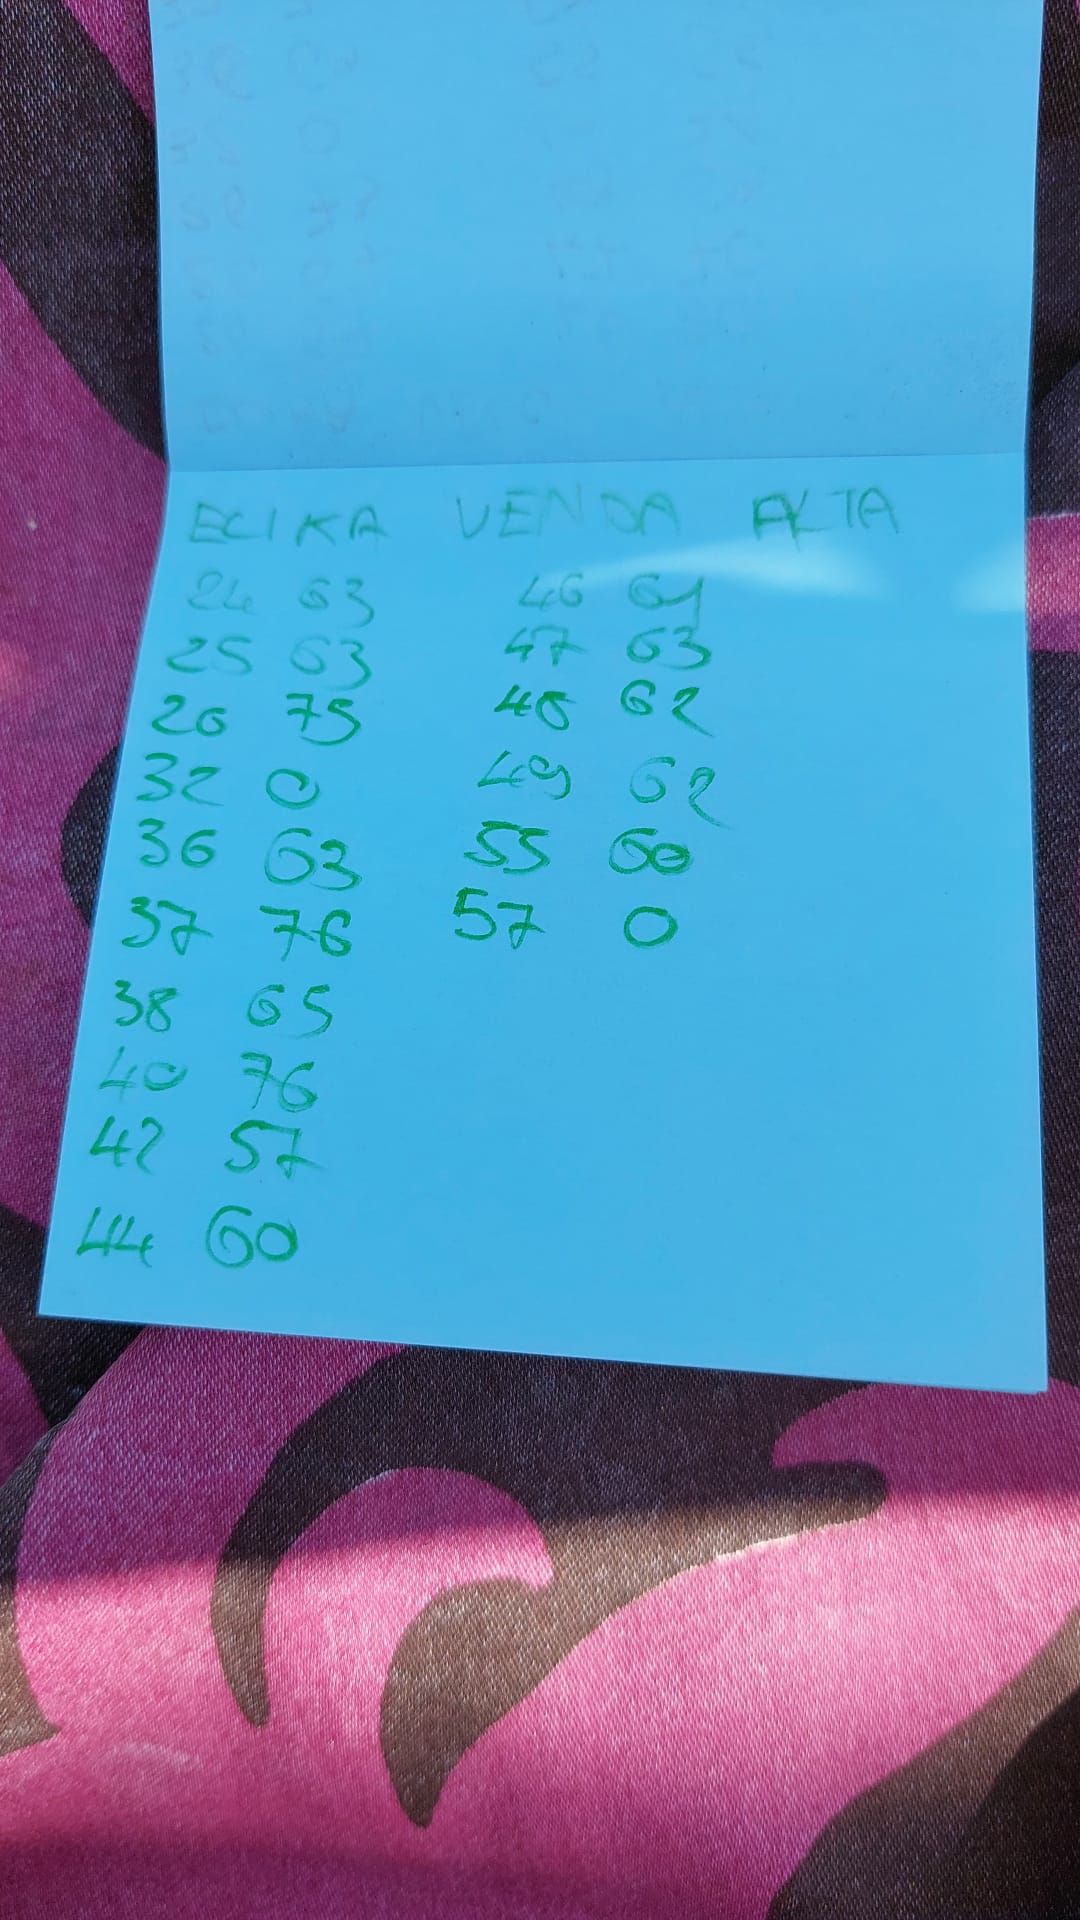 ECIKA VENDA AKTA
24 63 46 61
25 63 47 63
26 75 48 62
32 0 49 62
36 63 55 60
37 76 57 0
38 65
40 76
42 57
44 60